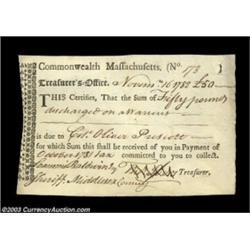 Commonwealth Massachusetts. (No. 173
Treasurer's-Office. Novem.r 16 1782 £50
THIS Certifies, That the Sum of Fifty pounds
discharged on
is due to Col.o Oliver Prescott
for which Sum this shall be received of you in Payment of
October 1781 Tax committed to you to collect.
Baldwin Treasurer.
Sheriff Middlesex County
©2003 Currency Auction.com